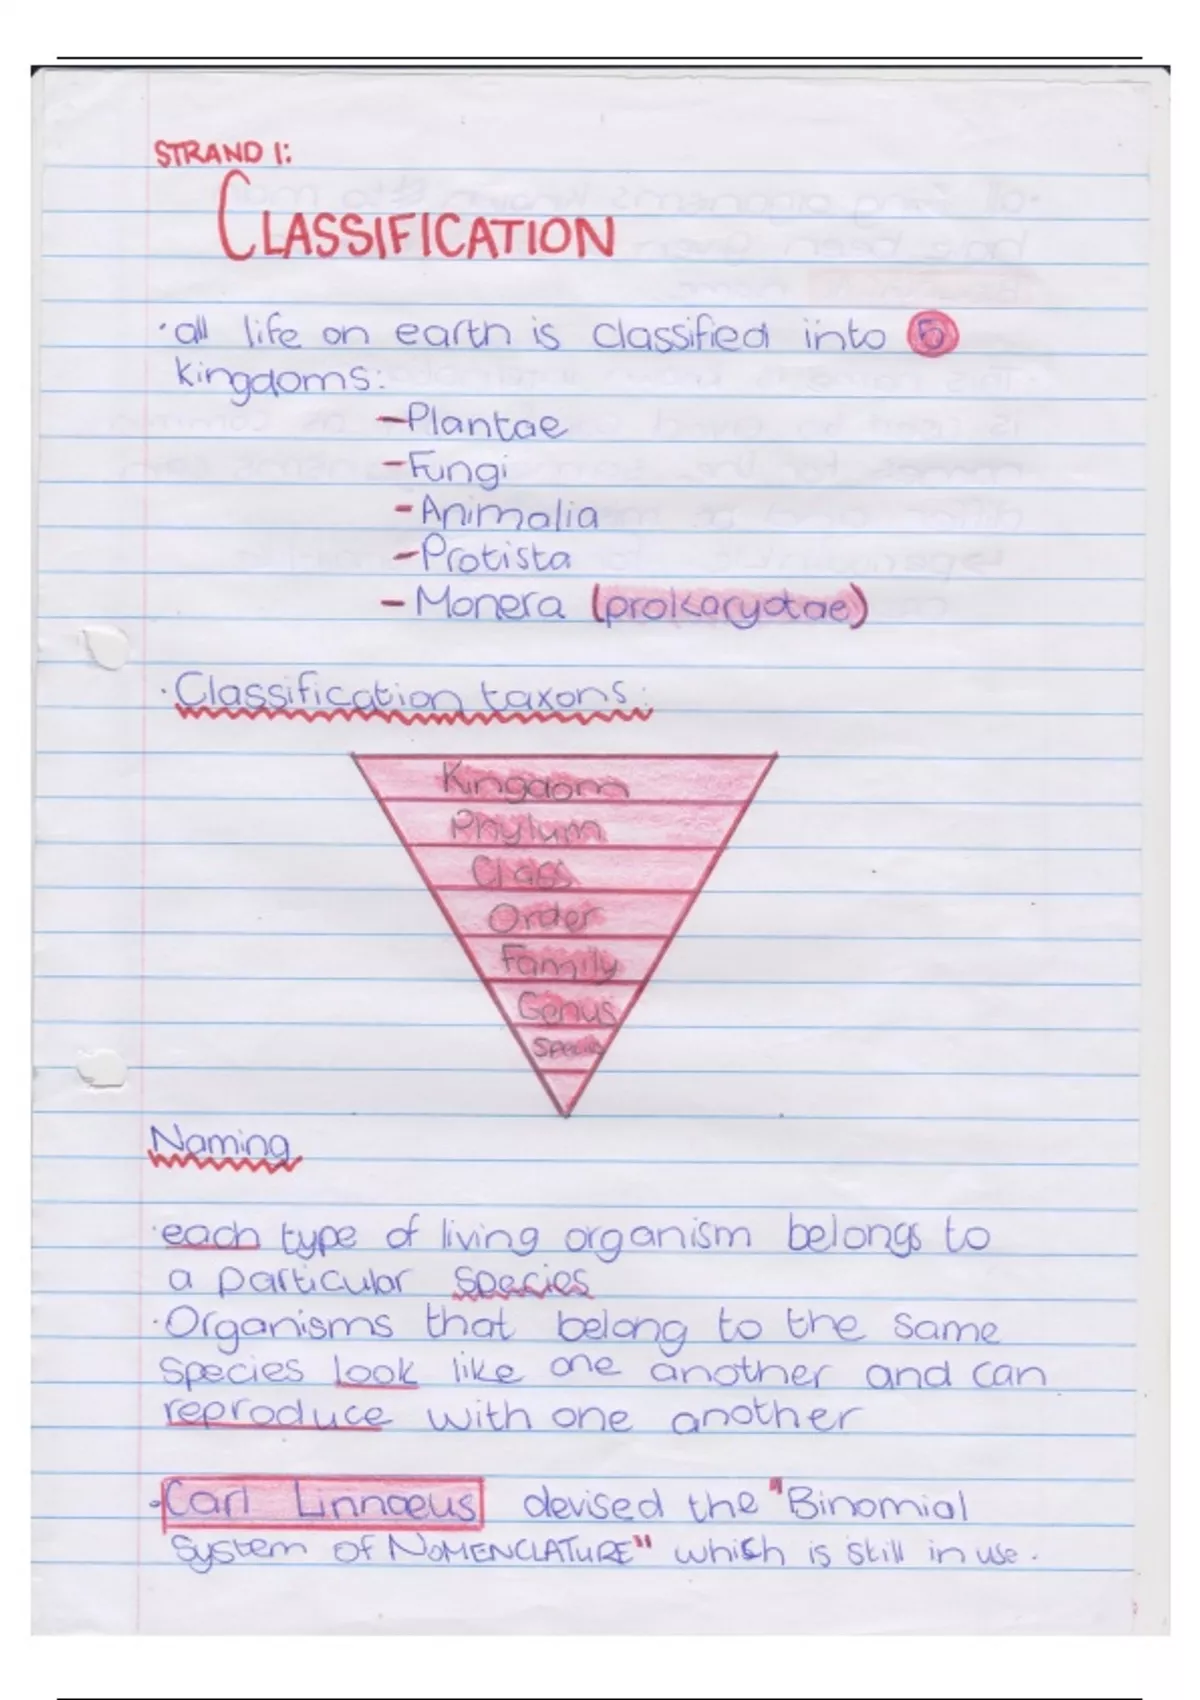 STRAND 1:
CLASSIFICATION
·all life on earth is classified into 5
kingdoms:
-Plantae
-Fungi
-Animalia
-Protista
-Monera (prokaryotae)
·Classification taxons:
Kingdom
Phylum
Class
Order
Family
Genus
Species
Naming
·each type of living organism belongs to
a particular species
·Organisms that belong to the same
species look like one another and can
reproduce with one another
·Carl Linnaeus devised the "Binomial
System of NOMENCLATURE" which is still in use.